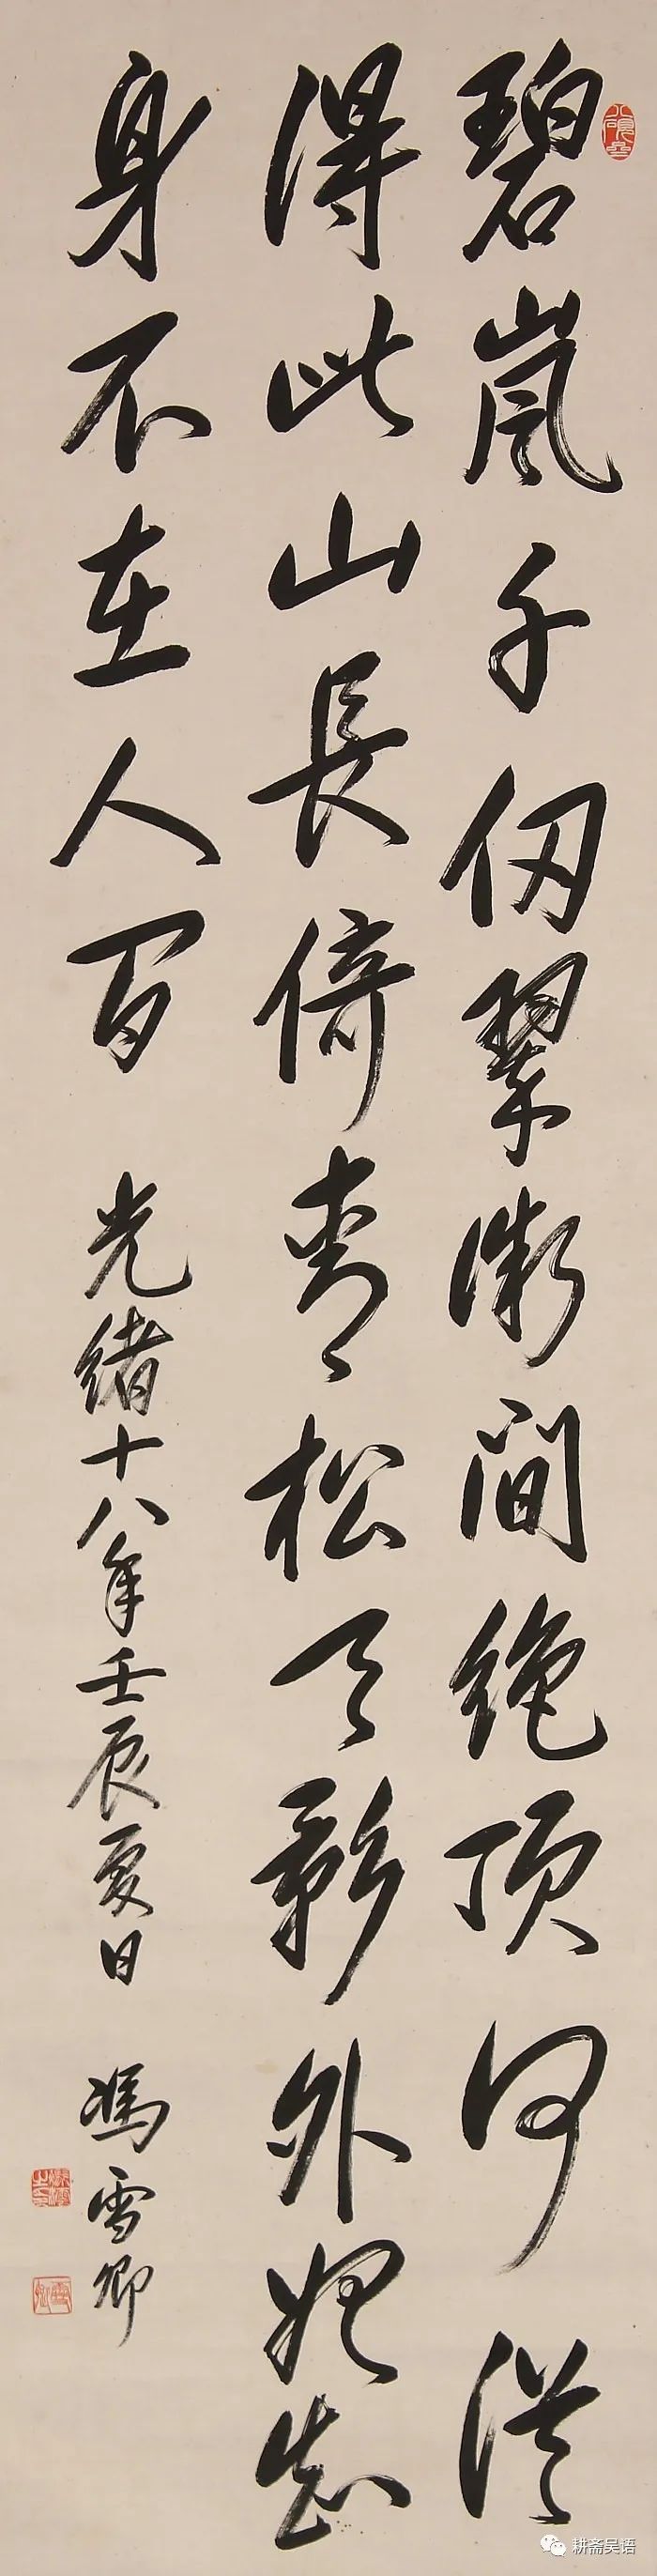 碧嵐千仞翠微間絕頂何從
得此山長倚青松天影外始知
身不在人間 光緒十八年壬辰夏日 馮雪卿
耕斋吴语